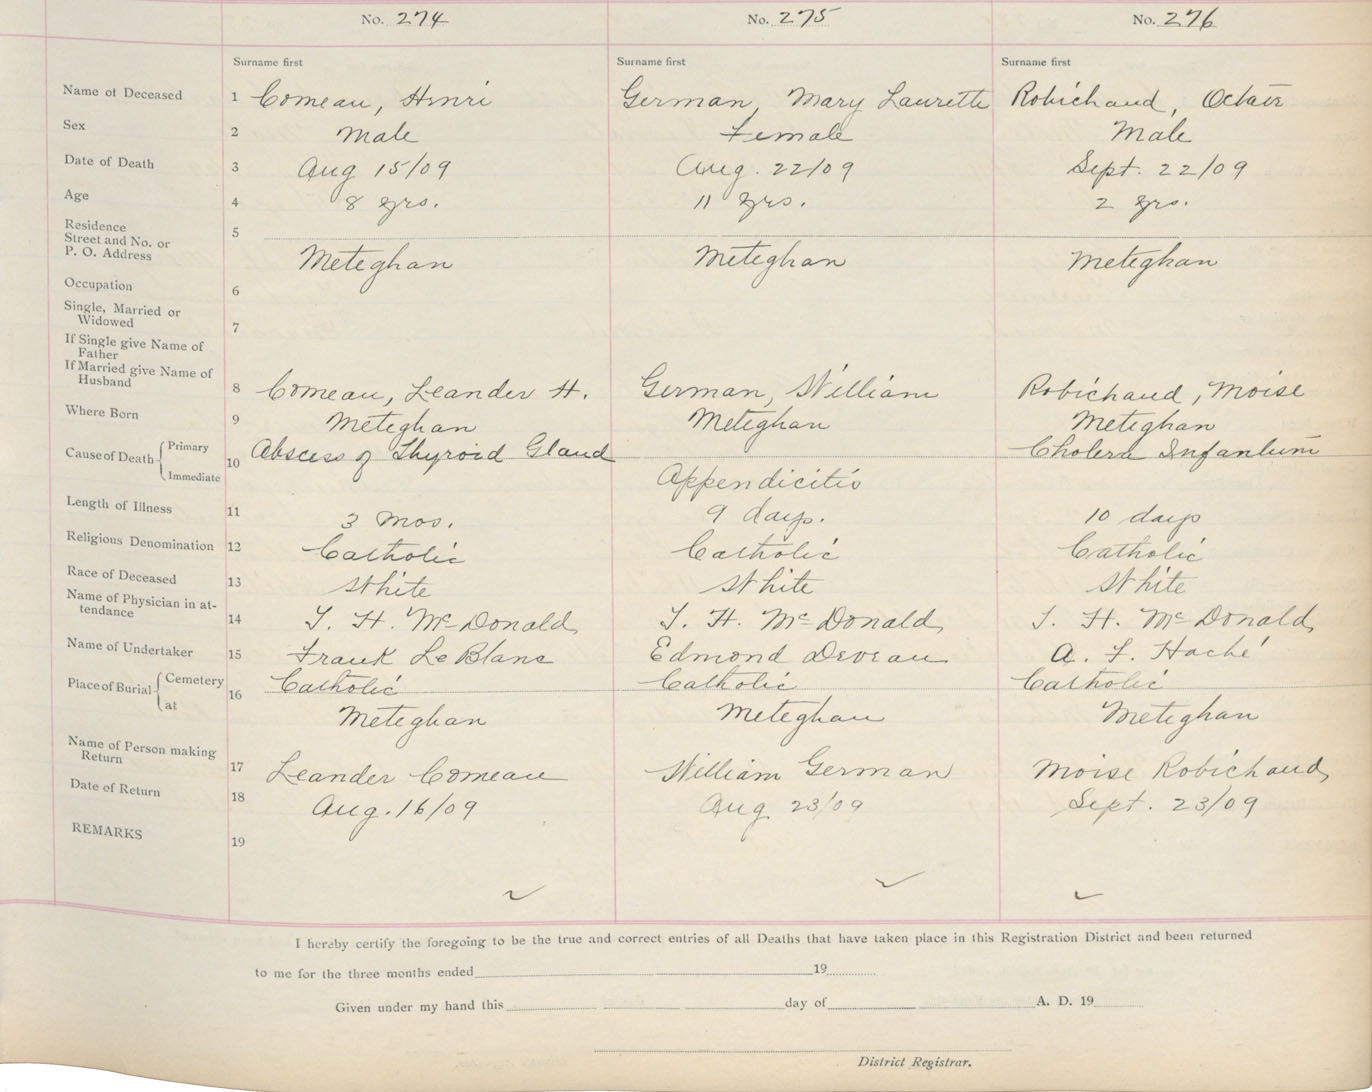 No. 274 No. 275 No. 276
Surname first Surname first Surname first
Name of Deceased 1 Comeau, Henri German, Mary Laurette Robichaud, Octave
Sex 2 Male Female Male
Date of Death 3 Aug 15/09 Aug. 22/09 Sept. 22/09
Age 4 8 yrs. 11 yrs. 2 yrs.
Residence
Street and No. or 5
P. O. Address Meteghan Meteghan Meteghan
Occupation 6
Single, Married or
Widowed 7
If Single give Name of
Father
If Married give Name of
Husband 8 Comeau, Leander H. German, William Robichaud, Moise
Where Born 9 Meteghan Meteghan Meteghan
Cause of Death Primary 10 Abscess of Thyroid Gland Cholera Infantum
Immediate Appendicitis
Length of Illness 11 3 mos. 9 days. 10 days
Religious Denomination 12 Catholic Catholic Catholic
Race of Deceased 13 White White White
Name of Physician in at-
tendance 14 T. H. McDonald T. H. McDonald T. H. McDonald
Name of Undertaker 15 Frank LeBlanc Edmond Deveau A. F. Haché
Place of Burial Cemetery 16 Catholic Catholic Catholic
at Meteghan Meteghan Meteghan
Name of Person making
Return 17 Leander Comeau William German Moise Robichaud
Date of Return 18 Aug. 16/09 Aug 23/09 Sept. 23/09
REMARKS 19
I hereby certify the foregoing to be the true and correct entries of all Deaths that have taken place in this Registration District and been returned
to me for the three months ended 19
Given under my hand this day of A. D. 19
District Registrar.